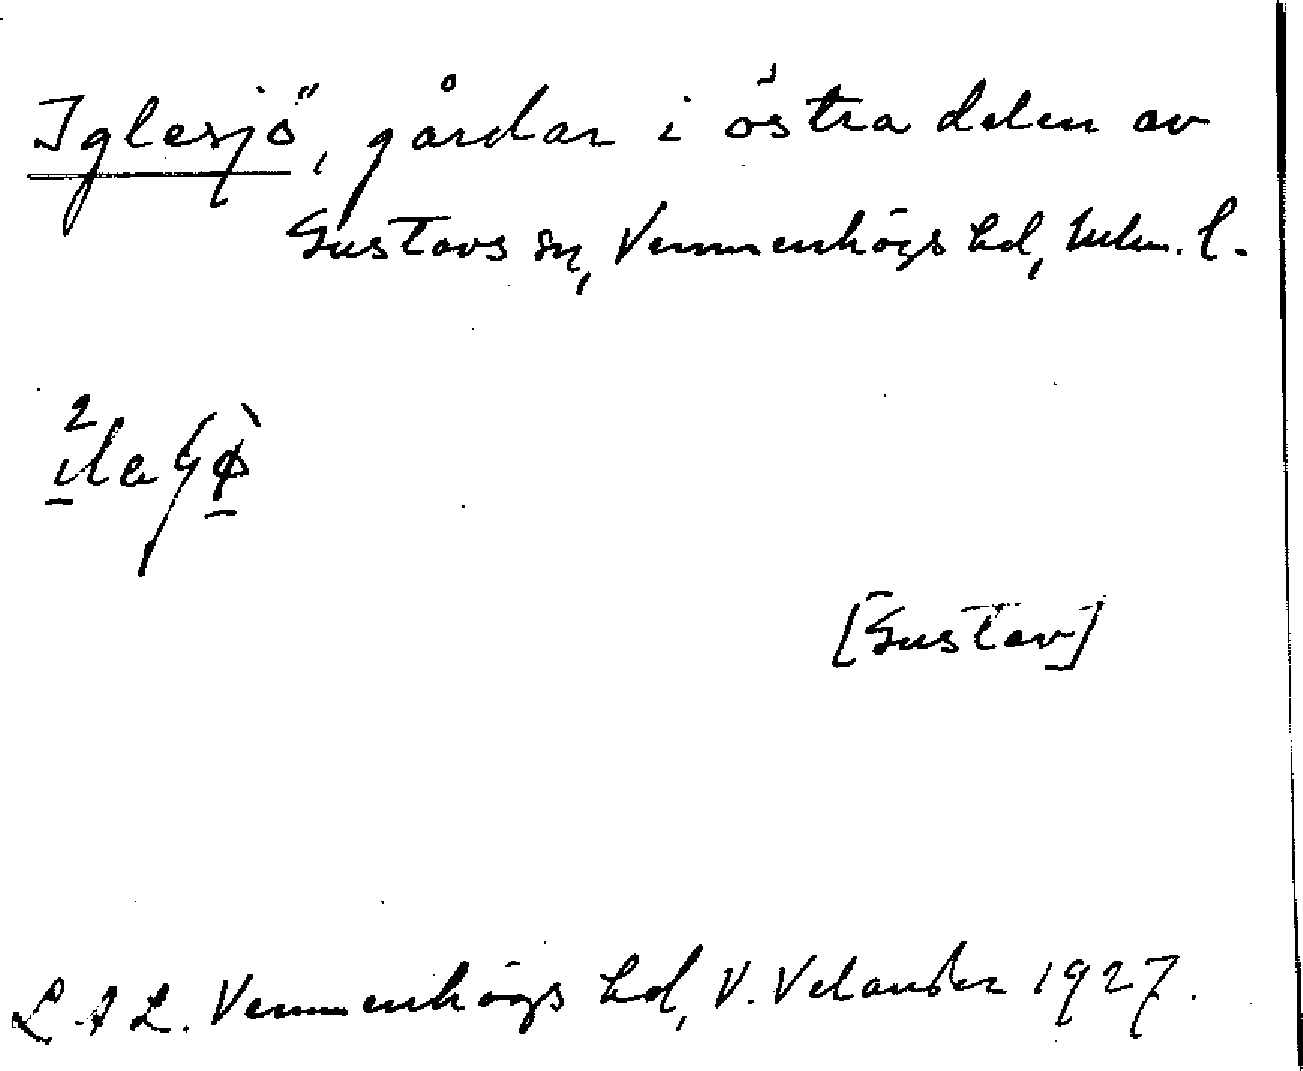 Iglesjö, gårdar i östra delen av
Gustavs sn, Vemmenhögs hd, Mlm. l.
[Gustav]
L.A.L. Vemmenhögs hd, V. Velander 1927.